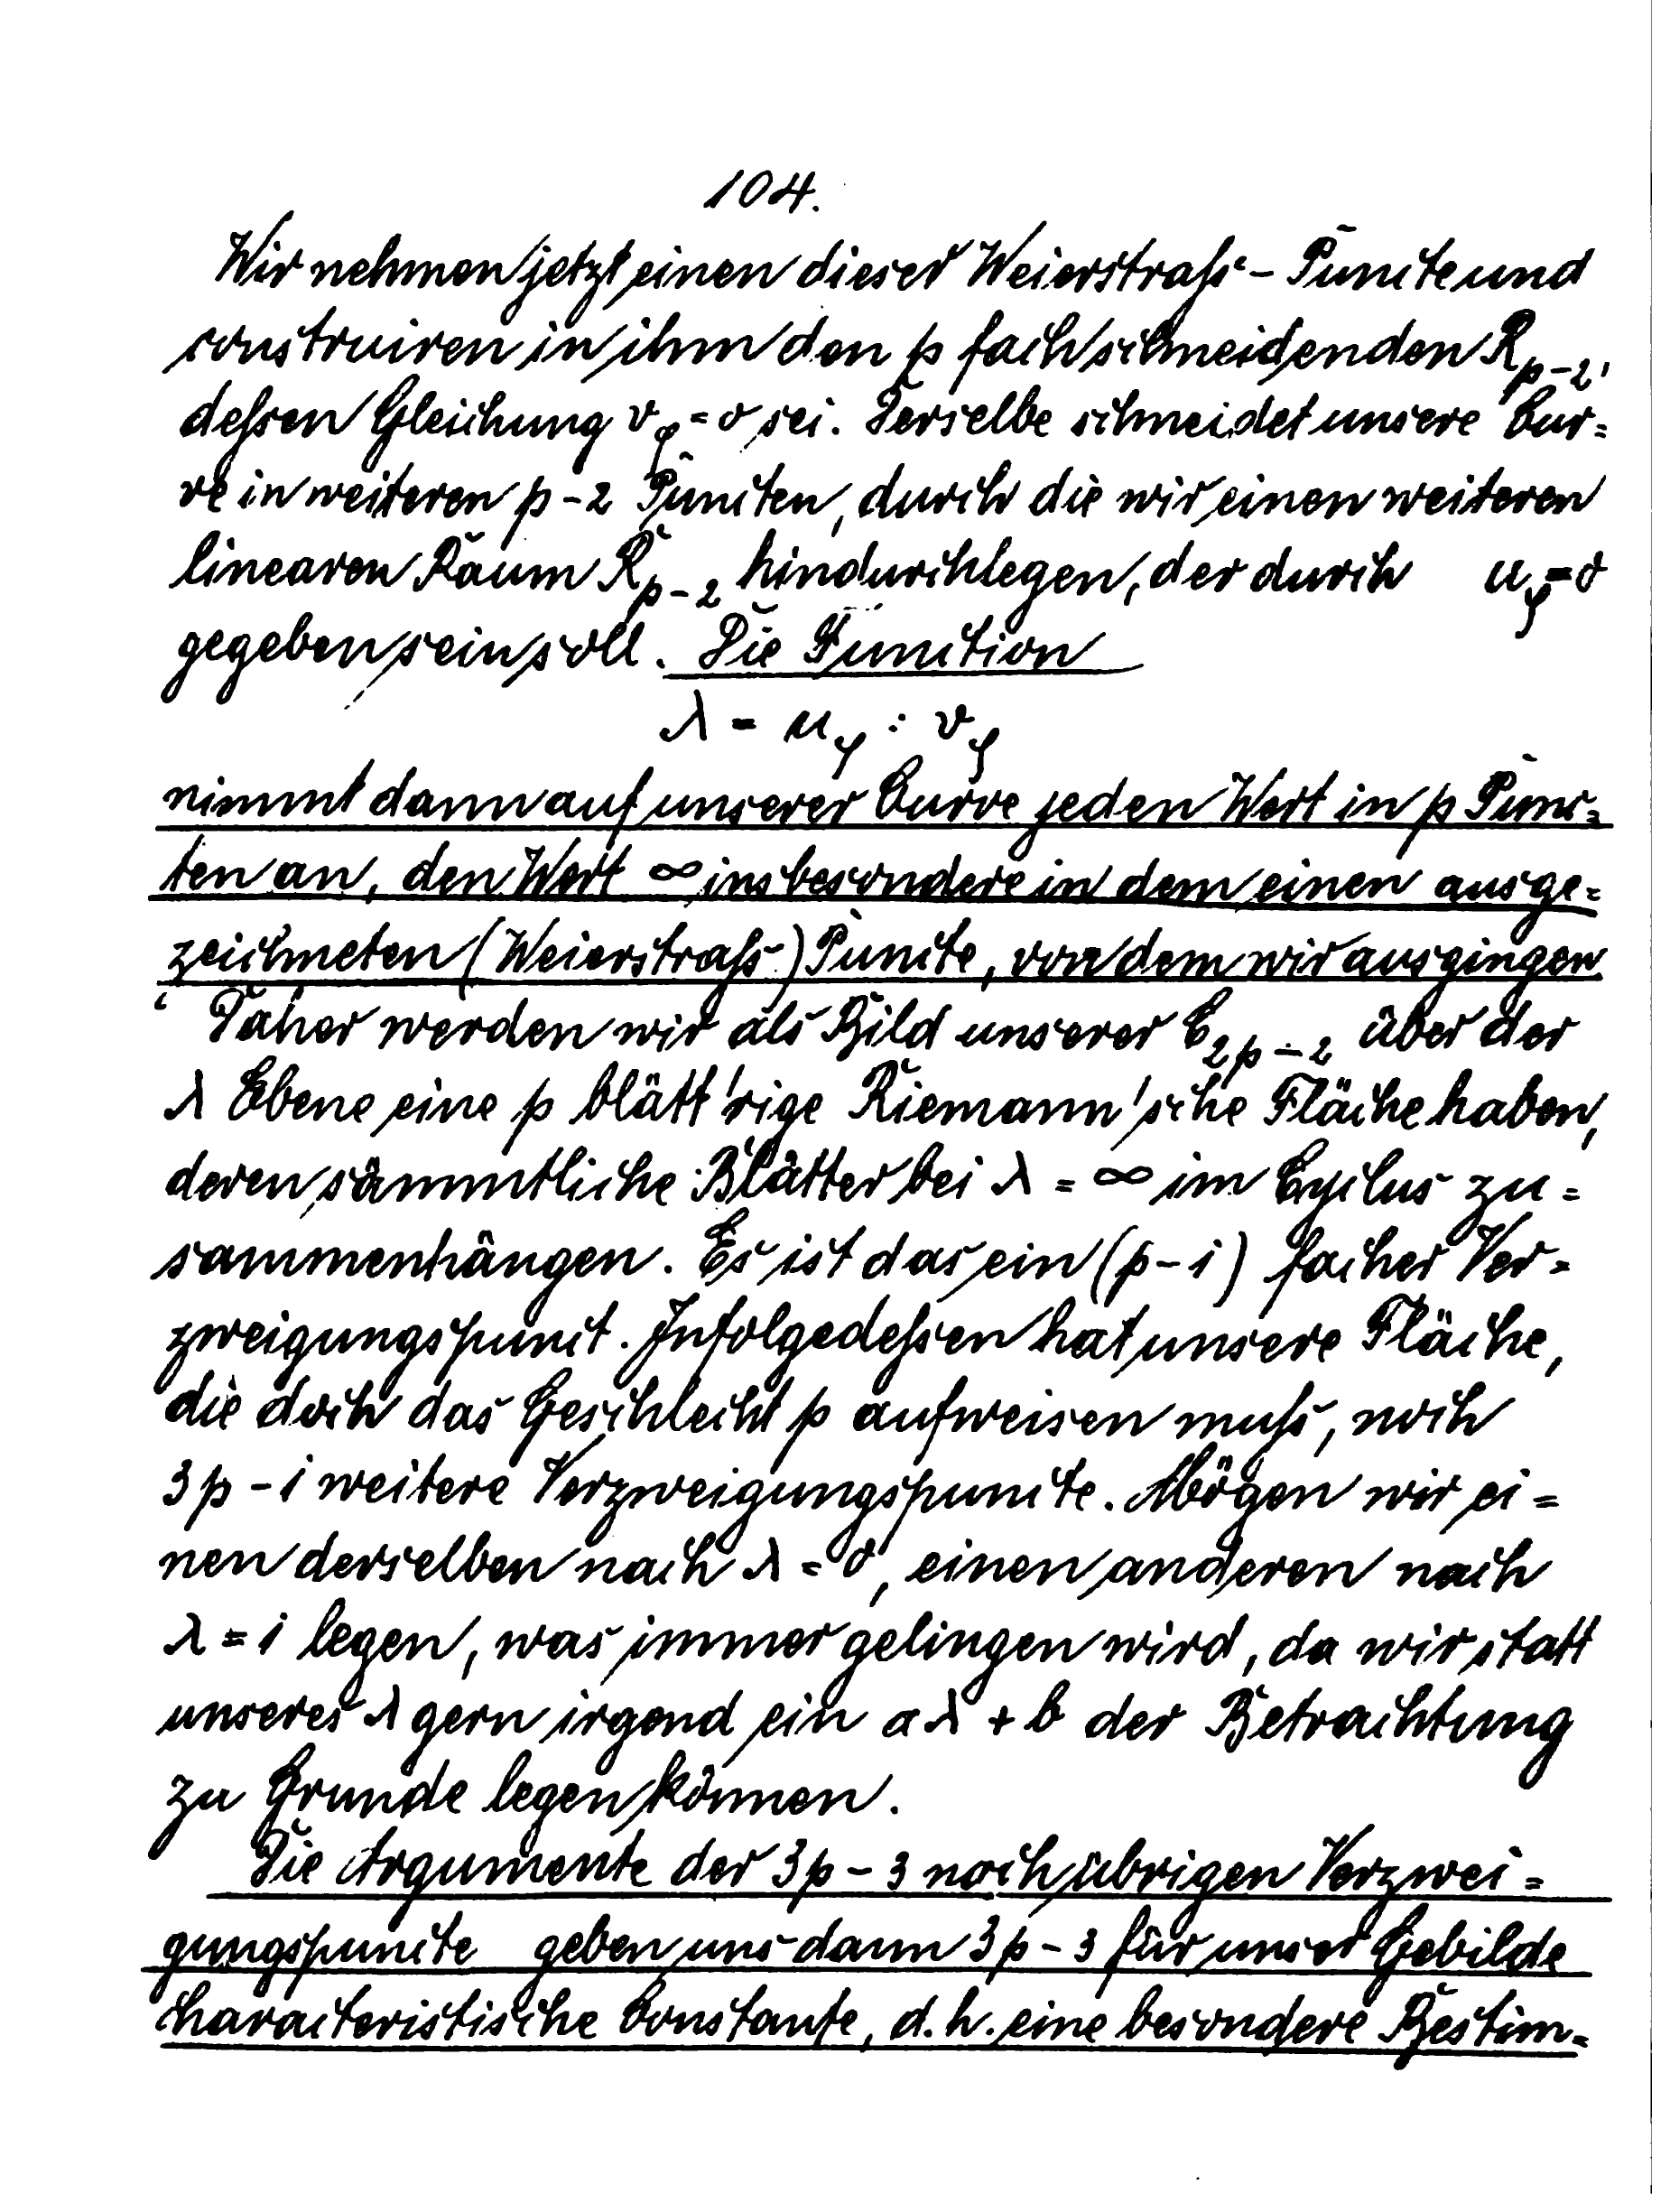 104.
Wir nehmen jetzt einen dieser Weierstraß-Puncte und
construiren in ihm den p fach schneidenden R_{p-2},
deßen Gleichung v_φ = 0 sei. Derselbe schneidet unsere Cur=
ve in weiteren p-2 Puncten, durch die wir einen weiteren
linearen Raum R_{p-2} hindurchlegen, der durch u_φ = 0
gegeben sein soll. Die Function
λ = u_φ : v_φ
nimmt dann auf unserer Curve jeden Wert in p Punc=
ten an, den Wert ∞ insbesondere in dem einen ausge=
zeichneten (Weierstraß) Puncte, von dem wir ausgingen
Daher werden wir als Bild unserer C_{2p-2} über der
λ Ebene eine p blätt'rige Riemann'sche Fläche haben,
deren sämmtliche Blätter bei λ = ∞ im Cyclus zu=
sammenhängen. Es ist das ein (p-1) facher Ver=
zweigungspunct. Infolgedeßen hat unsere Fläche,
die doch das Geschlecht p aufweisen muß, noch
3p-1 weitere Verzweigungspuncte. Mögen wir ei=
nen derselben nach λ = 0, einen anderen nach
λ = 1 legen, was immer gelingen wird, da wir statt
unseres λ gern irgend ein aλ + b der Betrachtung
zu Grunde legen können.
Die Argumente der 3p-3 noch übrigen Verzwei=
gungspuncte geben uns dann 3p-3 für unser Gebilde
characteristische Constante, d.h. eine besondere Bestim=